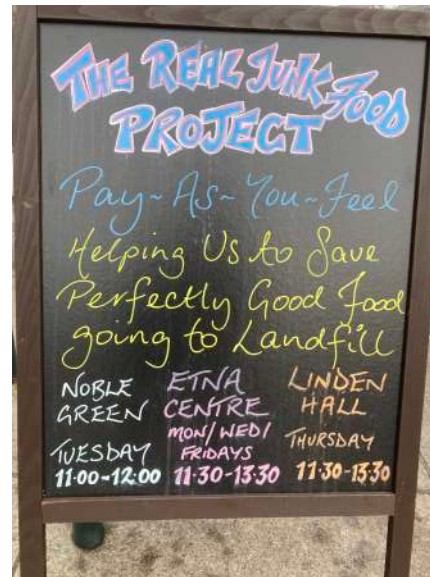 THE REAL JUNK FOOD
PROJECT
Pay~As~You~Feel
Helping Us to Save
Perfectly Good Food
going to Landfill
NOBLE
GREEN
TUESDAY
11.00-12.00
ETNA
CENTRE
MON/WED/
FRIDAYS
11.30-13.30
LINDEN
HALL
THURSDAY
11.30-13.30